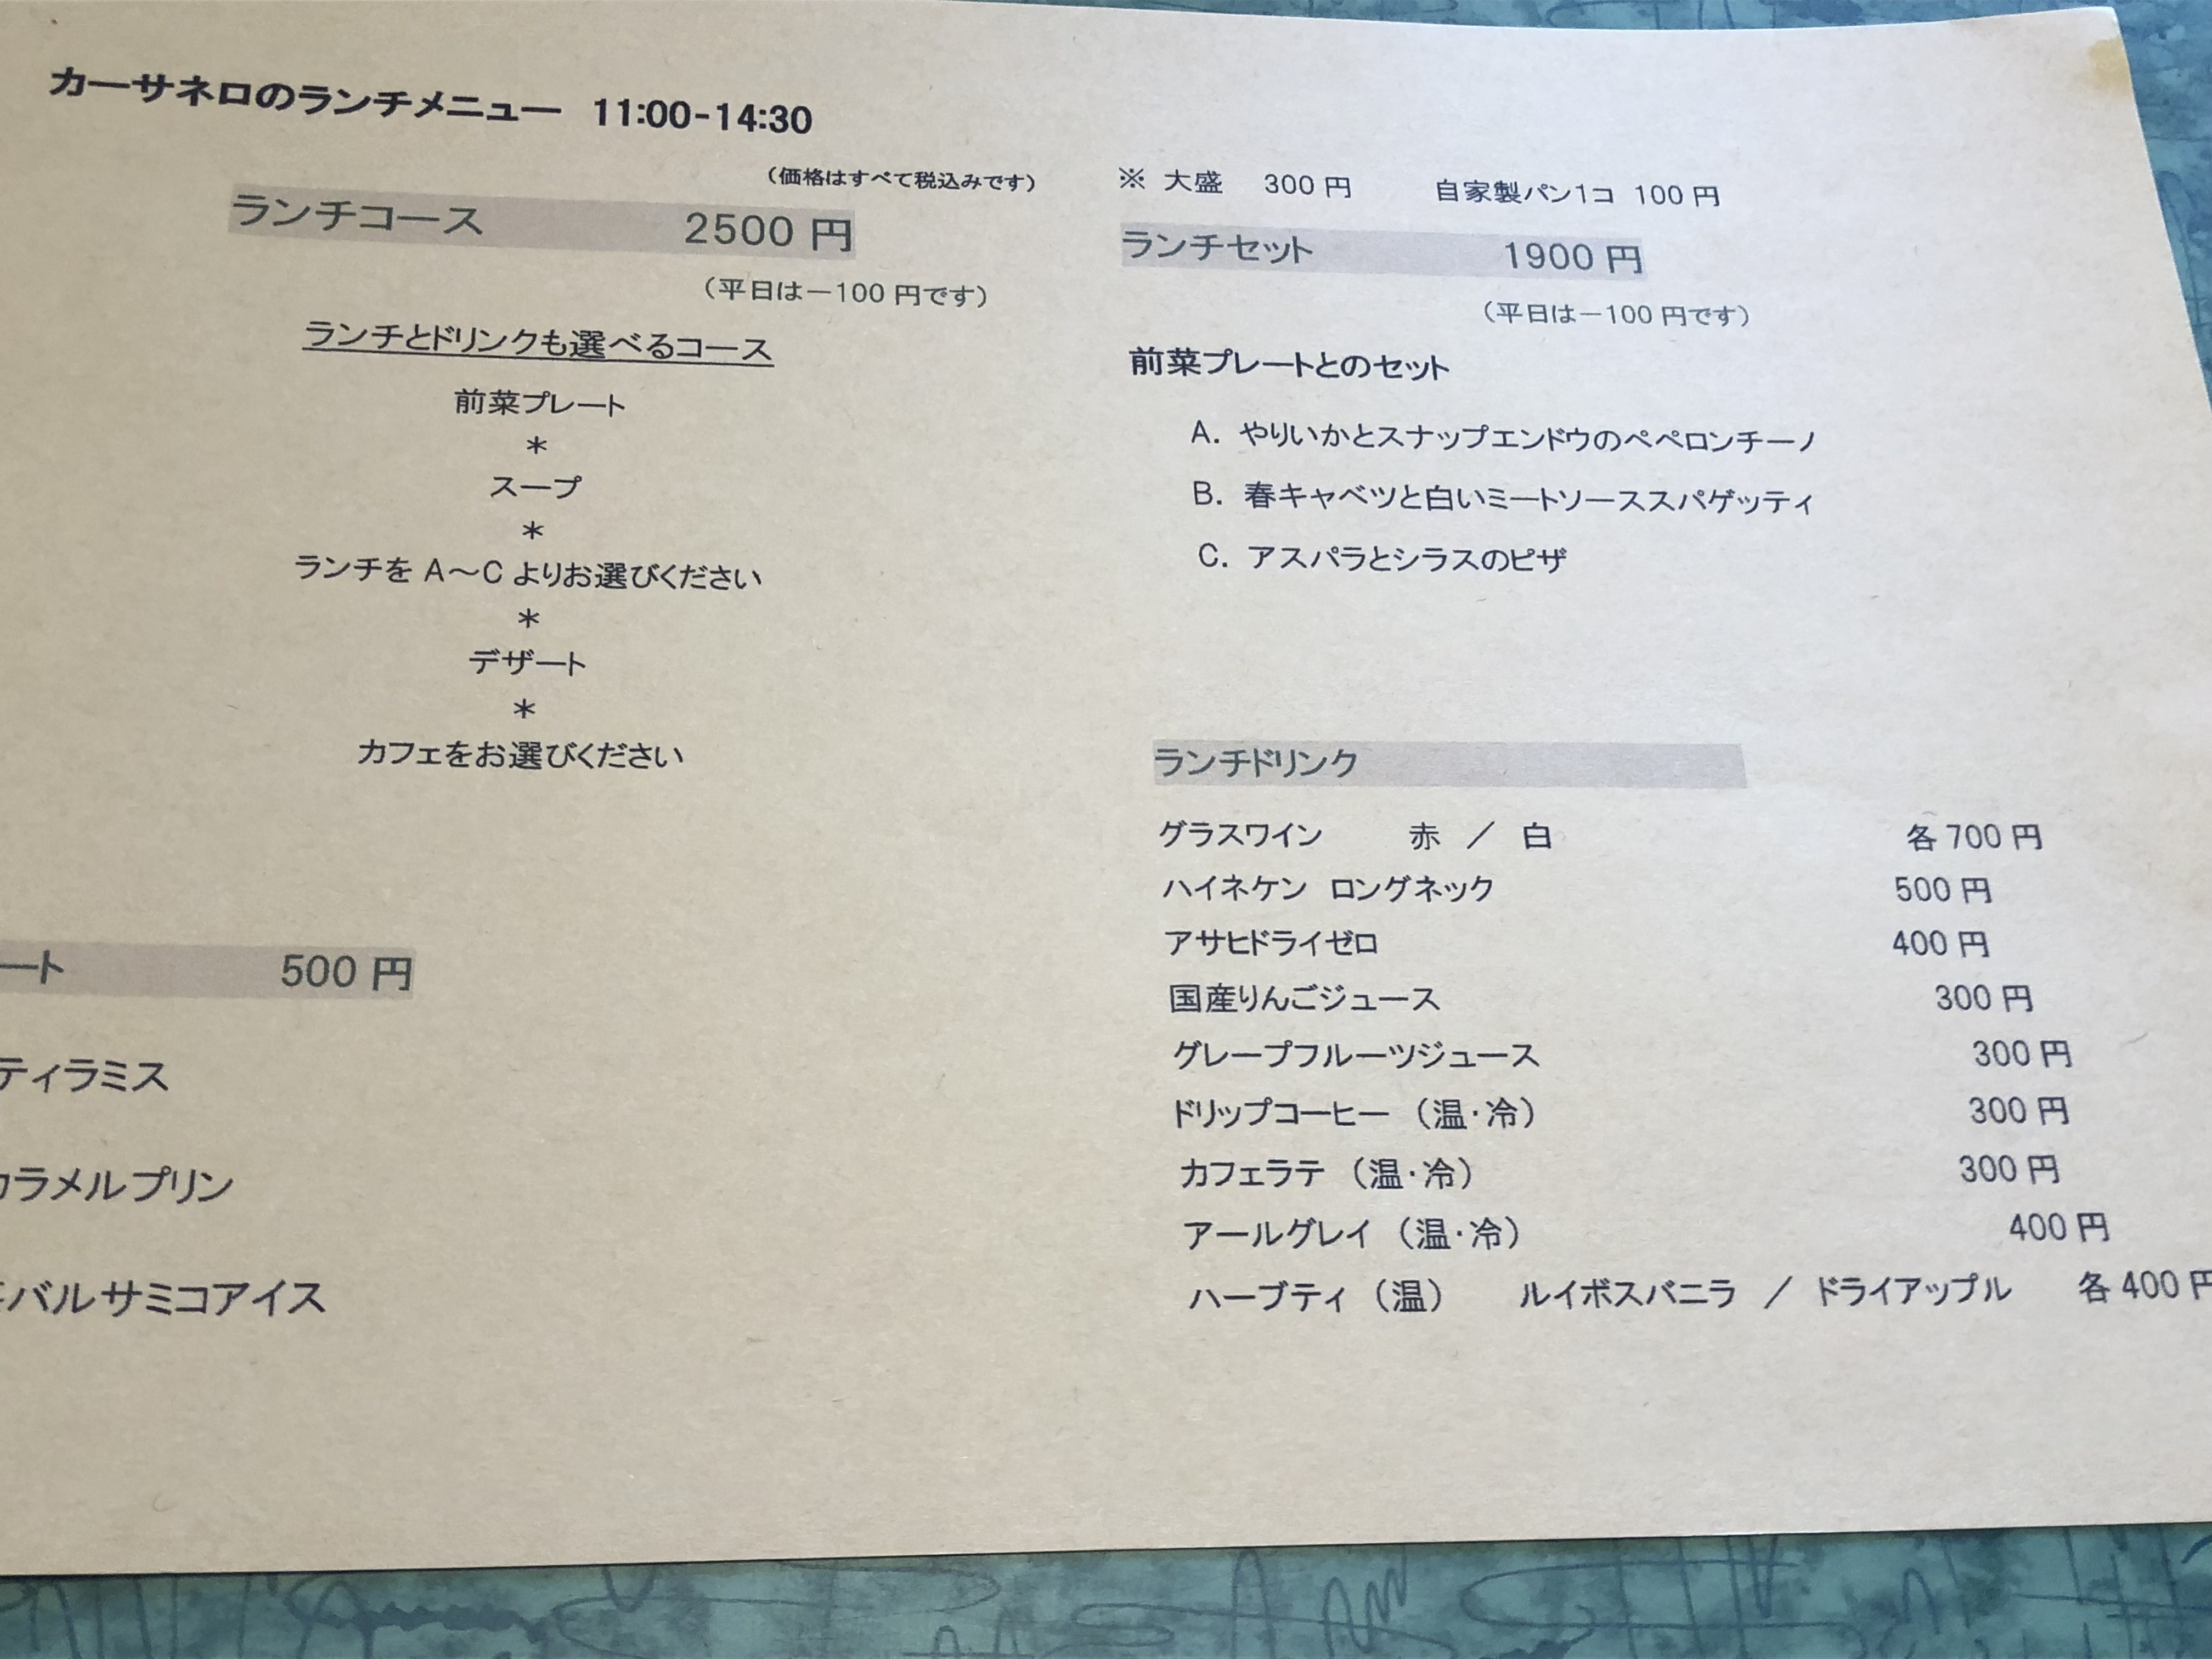 カーサネロのランチメニュー 11:00-14:30
（価格はすべて税込みです）
ランチコース 2500 円
（平日は－100 円です）
ランチとドリンクも選べるコース
前菜プレート
＊
スープ
＊
ランチを A～C よりお選びください
＊
デザート
＊
カフェをお選びください
ート 500 円
ティラミス
カラメルプリン
バルサミコアイス
※ 大盛 300 円 自家製パン1コ 100 円
ランチセット 1900 円
（平日は－100 円です）
前菜プレートとのセット
A. やりいかとスナップエンドウのペペロンチーノ
B. 春キャベツと白いミートソーススパゲッティ
C. アスパラとシラスのピザ
ランチドリンク
グラスワイン 赤 ／ 白 各 700 円
ハイネケン ロングネック 500 円
アサヒドライゼロ 400 円
国産りんごジュース 300 円
グレープフルーツジュース 300 円
ドリップコーヒー（温・冷） 300 円
カフェラテ（温・冷） 300 円
アールグレイ（温・冷） 400 円
ハーブティ（温） ルイボスバニラ ／ ドライアップル 各 400 円